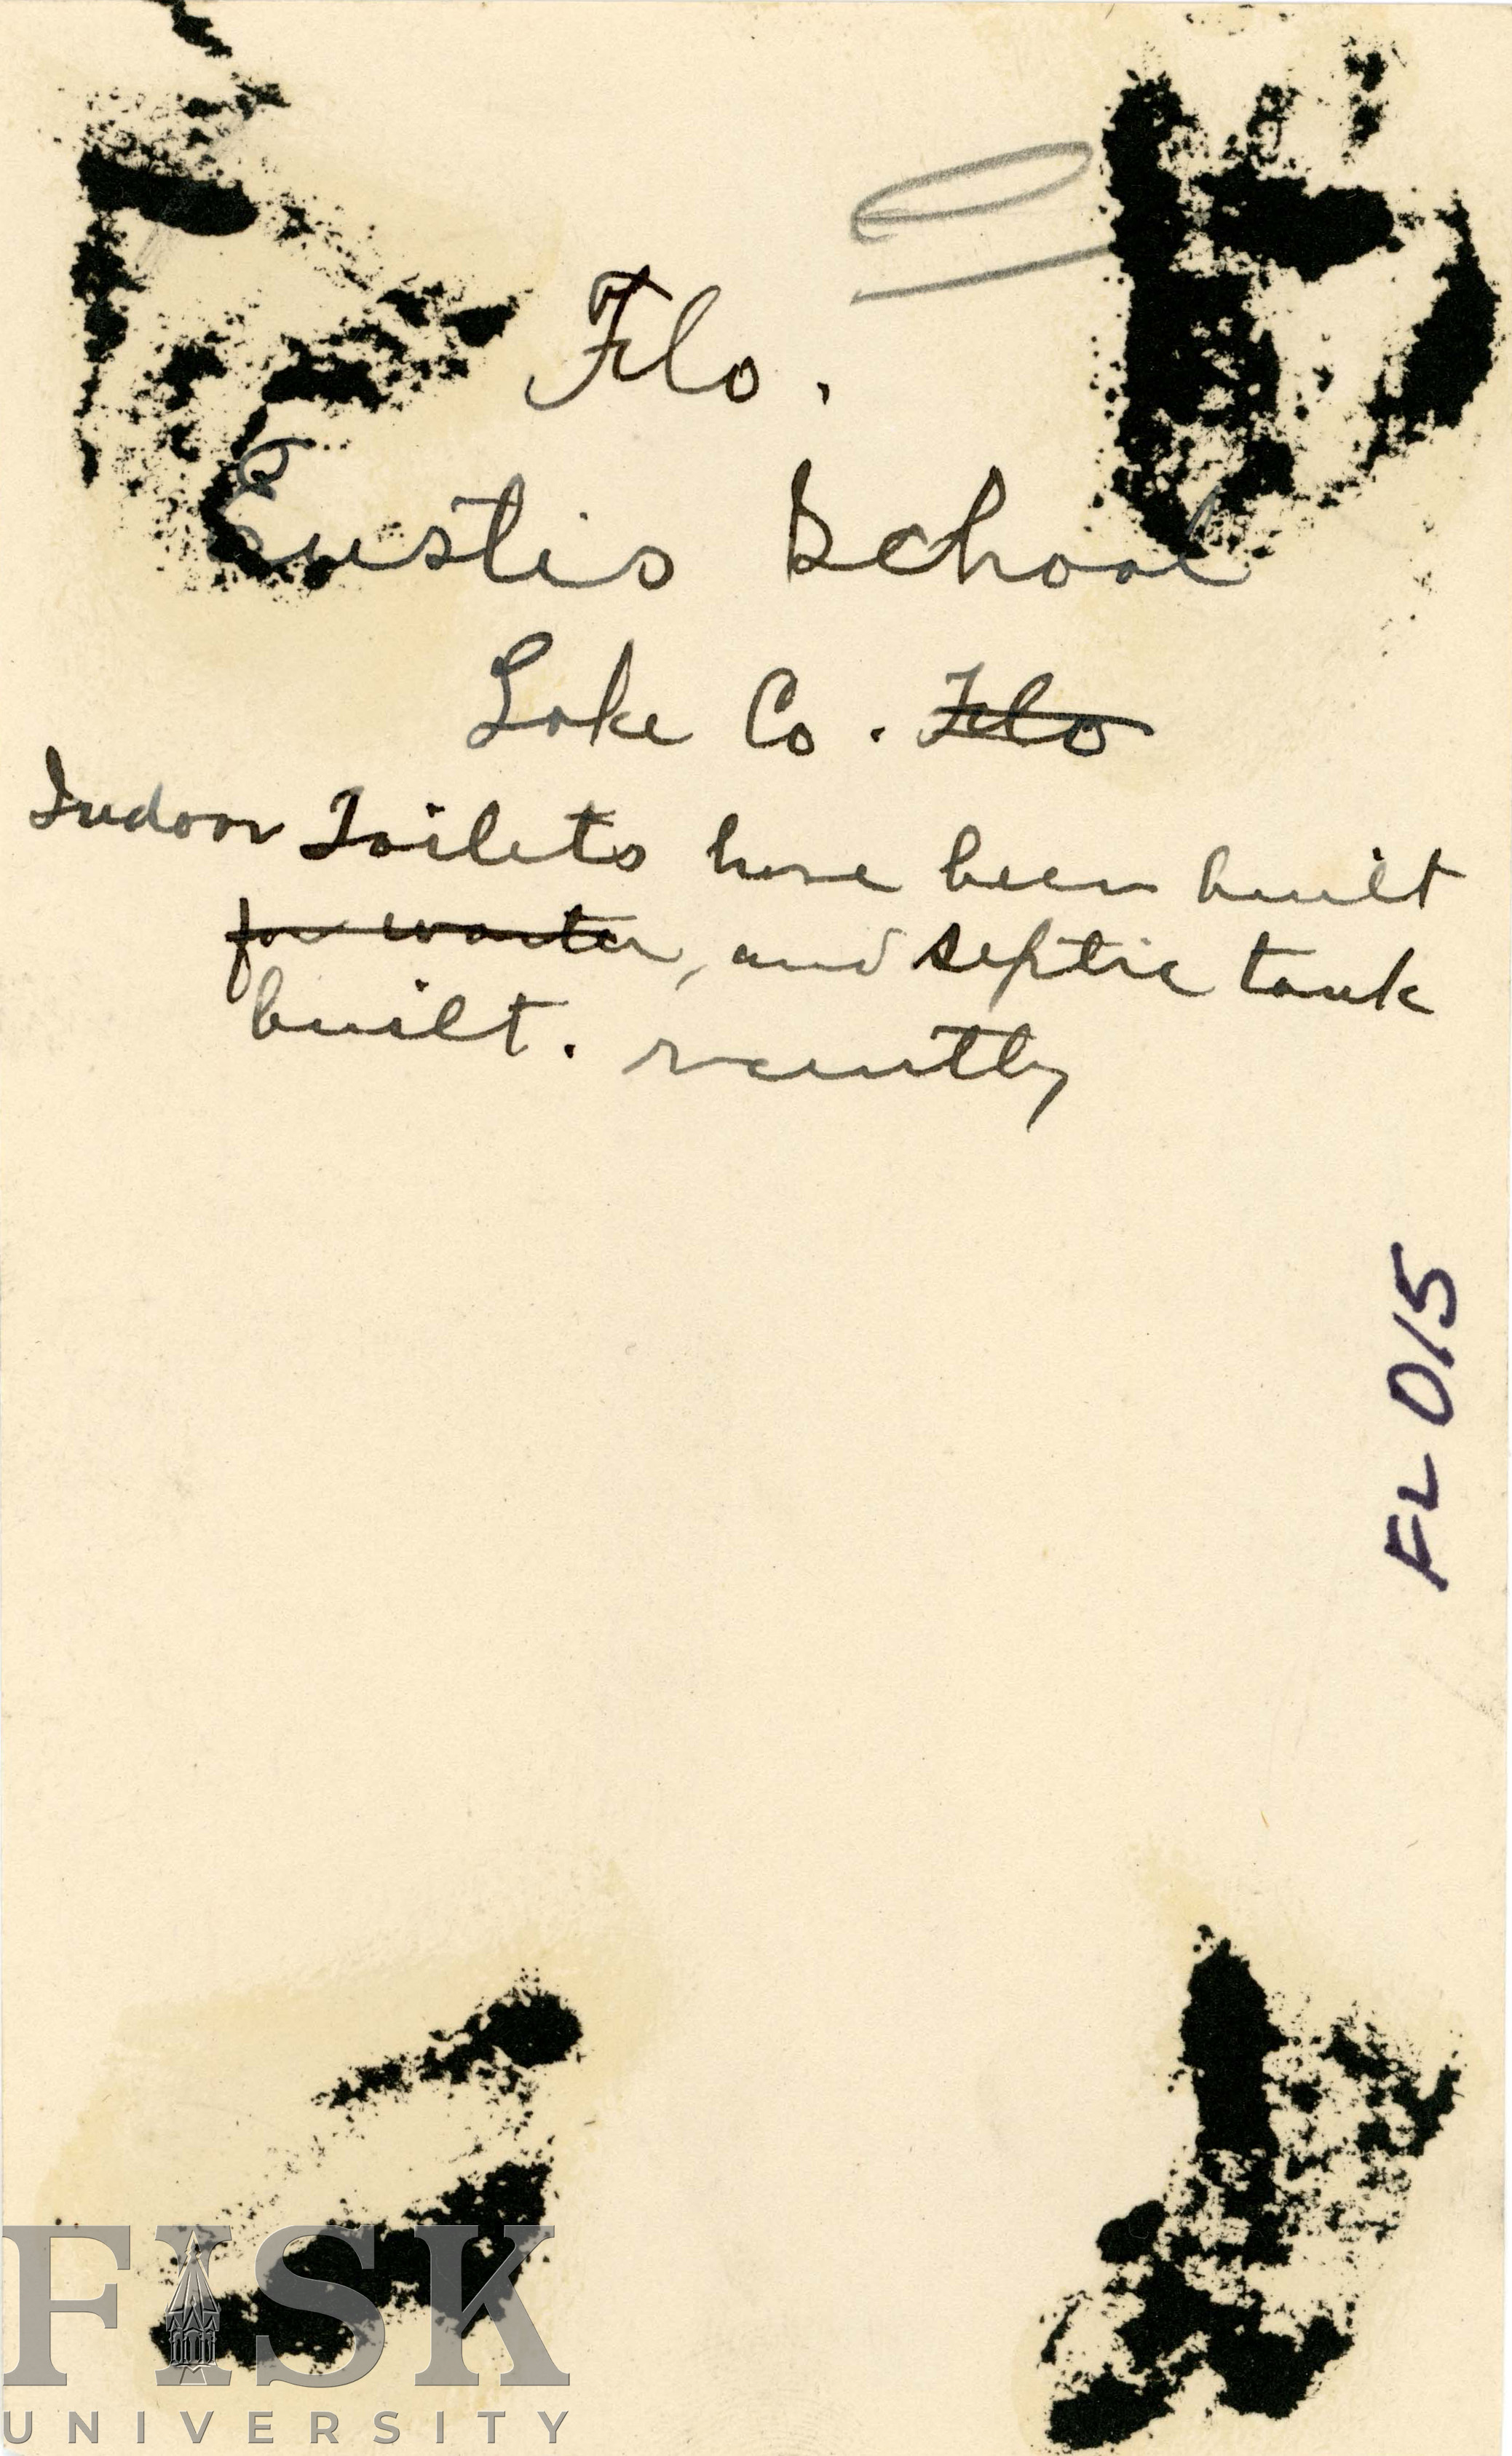 Fla.
Eustis School
Lake Co. Fla
Indoor Toilets have been built
for water, and septic tank
built. recently
FL 015
FISK
UNIVERSITY